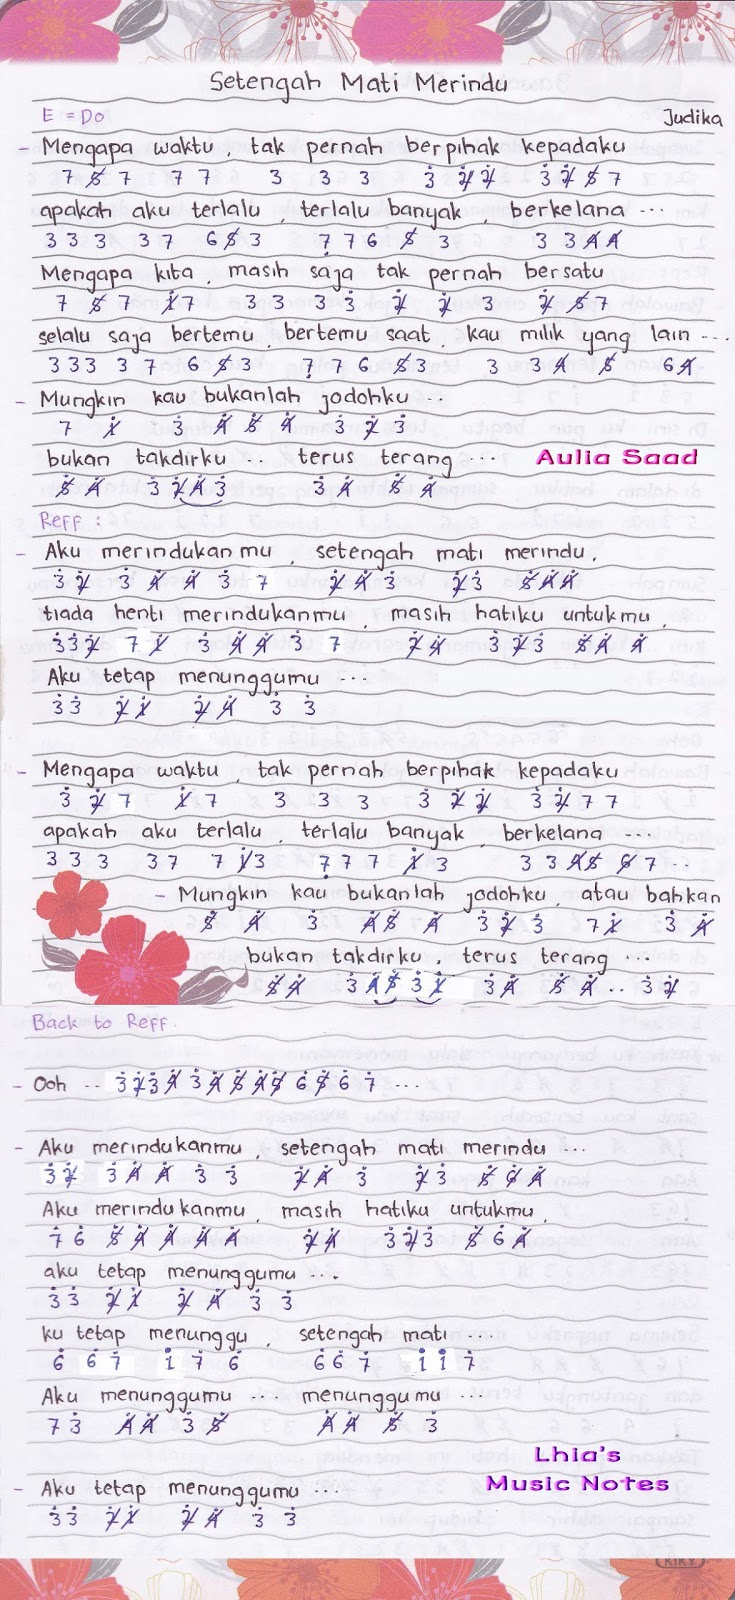 Setengah Mati Merindu
E = Do
Judika
- Mengapa waktu, tak pernah berpihak kepadaku
7 5 7 7 7 3 3 3 3 2 2 3 2 5 7
apakah aku terlalu terlalu banyak berkelana ...
3 3 3 3 7 6 5 3 7 7 6 5 3 3 3 4 4
Mengapa kita, masih saja tak pernah bersatu
7 5 7 1 7 3 3 3 3 2 2 3 2 5 7
selalu saja bertemu, bertemu saat, kau milik yang lain ...
3 3 3 3 7 6 5 3 7 7 6 5 3 3 3 4 5 6 4
- Mungkin kau bukanlah jodohku ..
7 1 3 4 5 4 3 2 3
bukan takdirku .. terus terang ...
5 4 3 2 4 3 3 4 5 4
Aulia Saad
Reff :
- Aku merindukanmu, setengah mati merindu,
3 2 3 4 4 3 7 2 4 3 2 3 5 4 4
tiada henti merindukanmu, masih hatiku untukmu,
3 3 2 7 1 3 4 4 3 7 2 4 3 2 3 5 4 4
Aku tetap menunggumu ...
3 3 2 1 2 4 3 3
- Mengapa waktu, tak pernah berpihak kepadaku
3 2 7 1 7 3 3 3 3 2 2 3 2 7 7
apakah aku terlalu, terlalu banyak, berkelana ...
3 3 3 3 7 7 1 3 7 7 7 1 3 3 3 4 5 6 7 ..
- Mungkin kau bukanlah jodohku, atau bahkan
5 4 3 4 5 4 3 2 3 7 1 3 4
bukan takdirku, terus terang ...
5 4 3 4 5 3 1 3 4 5 4 .. 3 2
Back to Reff.
- Ooh .. 3 2 3 4 3 4 5 4 5 6 5 6 7 ...
- Aku merindukanmu, setengah mati merindu ...
3 2 3 4 4 3 3 2 4 3 2 3 5 6 4
Aku merindukanmu, masih hatiku untukmu,
7 6 5 4 4 4 4 2 4 3 2 3 5 6 4
aku tetap menunggumu ...
3 3 2 1 2 4 3 3
ku tetap menunggu, setengah mati ...
6 6 7 1 7 6 6 6 7 1 1 7
Aku menunggumu ... menunggumu ...
7 3 4 4 3 5 4 4 5 3
Lhia's
Music Notes
- Aku tetap menunggumu ...
3 3 2 1 2 4 3 3
KIKY